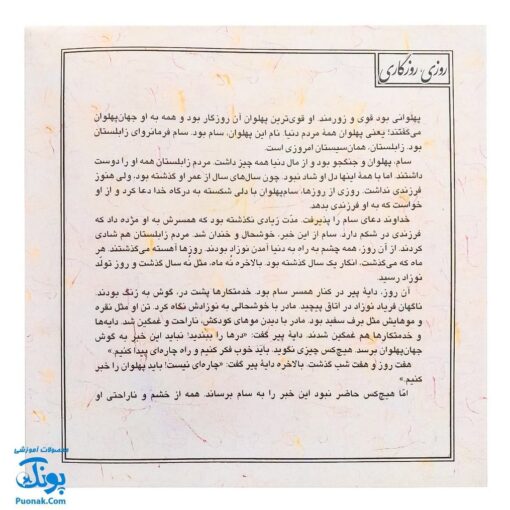 روزی، روزگاری
پهلوانی بود قوی و زورمند. او قوی‌ترین پهلوان آن روزگار بود و همه به او جهان‌پهلوان
می‌گفتند؛ یعنی پهلوان همهٔ مردم دنیا. نام این پهلوان، سام بود. سام فرمانروای زابلستان
بود. زابلستان، همان سیستان امروزی است.
سام، پهلوان و جنگجو بود و از مال دنیا همه چیز داشت. مردم زابلستان همه او را دوست
داشتند. اما با همهٔ اینها دل او شاد نبود. چون سال‌های سال از عمر او گذشته بود، ولی هنوز
فرزندی نداشت. روزی از روزها، سام‌پهلوان با دلی شکسته به درگاه خدا دعا کرد و از او
خواست که به او فرزندی بدهد.
خداوند دعای سام را پذیرفت. مدّت زیادی نگذشته بود که همسرش به او مژده داد که
فرزندی در شکم دارد. سام از این خبر، خوشحال و خندان شد. مردم زابلستان هم شادی
کردند. از آن روز، همه چشم به راه به دنیا آمدن نوزاد بودند. روزها آهسته می‌گذشتند. هر
ماه که می‌گذشت، انگار یک سال گذشته بود. بالاخره نُه ماه، مثل نُه سال گذشت و روز تولّد
نوزاد رسید.
آن روز، دایهٔ پیر در کنار همسر سام بود. خدمتکارها پشت در، گوش به زنگ بودند.
ناگهان فریاد نوزاد در اتاق پیچید. مادر با خوشحالی به نوزادش نگاه کرد. تن او مثل نقره
و موهایش مثل برف سفید بود. مادر با دیدن موهای کودکش ناراحت و غمگین شد. دایه‌ها
و خدمتکارها هم غمگین شدند. دایهٔ پیر گفت: «درها را ببندید! نباید این خبر به گوش
جهان‌پهلوان برسد. هیچ‌کس چیزی نگوید. باید خوب فکر کنیم و راه چاره‌ای پیدا کنیم.»
هفت روز و هفت شب گذشت. بالاخره دایهٔ پیر گفت: «چاره‌ای نیست! باید پهلوان را خبر
کنیم.»
امّا هیچ‌کس حاضر نبود این خبر را به سام برساند. همه از خشم و ناراحتی او
محصولات آموزشی
پونک
Puonak.Com